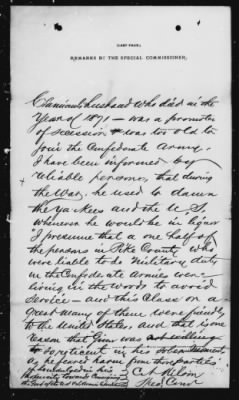 (LAST PAGE.)
REMARKS BY THE SPECIAL COMMISSIONER.
Claimants husband who died in the
Year of 1871 - was a promoter
of secession & was too old to
join the Confederate Army.
I have been informed by
reliable persons, that during
the War, he used to damn
the Yankees and the U.S.
whenever he would be in liquor
I presume that one half of
the persons in Pike County who
were liable to do military duty
in the Confederate Armies were
living in the woods to avoid
service - and this class on a
great many of them were friendly
to the United States, and that is one
reason that Guy was not willing
to so reticent in her
as he feared harm from those parties
if he indulged in his